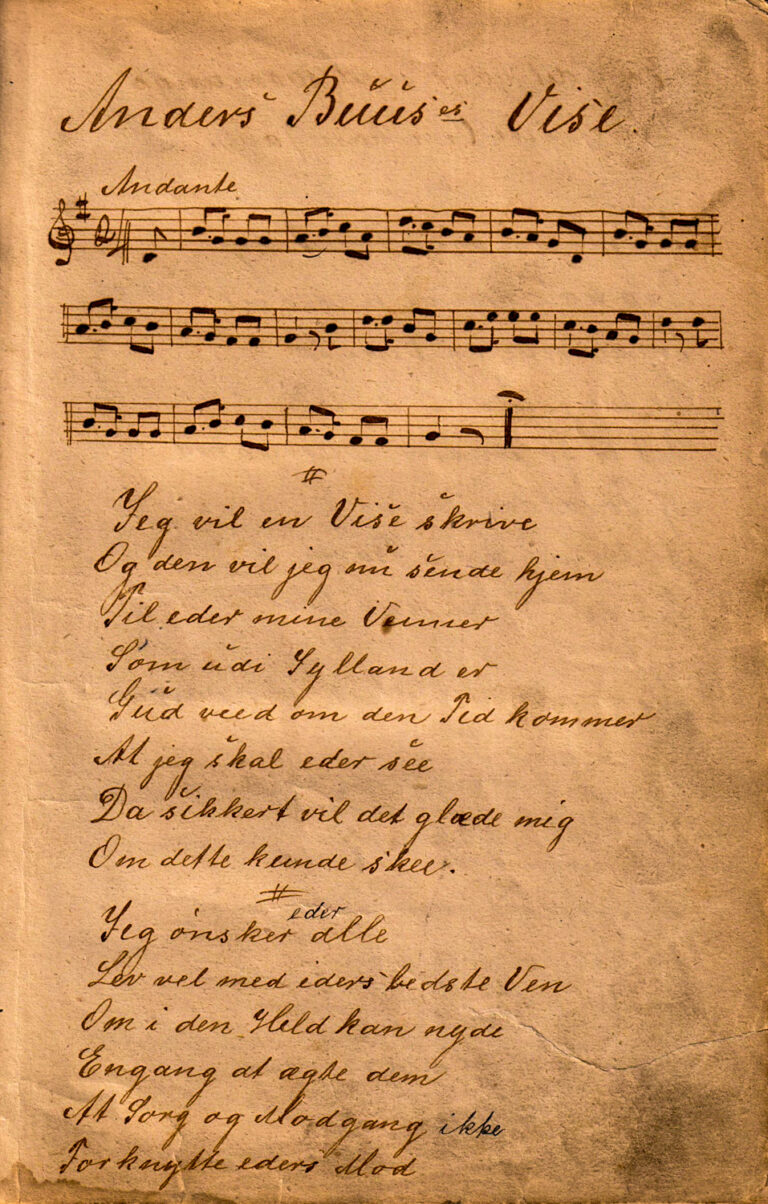 Anders Buus es Vise.
Andante
Jeg vil en Vise skrive
Og den vil jeg nu sende hjem
Til eder mine Venner
Som udi Jylland er
Gud veed om den Tid kommer
At jeg skal eder see
Da sikkert vil det glæde mig
Om dette kunde skee.
eder
Jeg ønsker alle
Lev vel med eders bedste Ven
Om i den Held kan nyde
Engang at ægte dem
At Sorg og Modgang ikke
Forknytte eders Mod